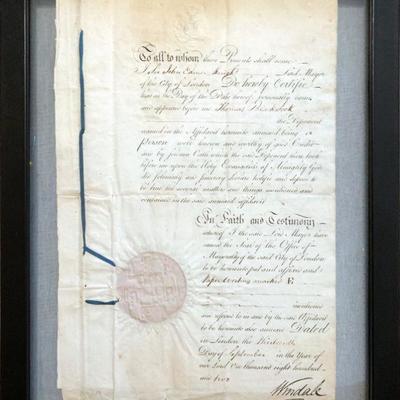 To all to whom these Presents shall come
I Sir John Eamer Knight Lord Mayor
of the City of London Do hereby Certify
that on the Day of the Date hereof personally came
and appeared before me Thomas
the Deponent
named in the Affidavit hereunto annexed being a
person well known and worthy of good Credit
and by solemn Oath which the said Deponent then took
before me upon the Holy Evangelists of Almighty God
did solemnly and sincerely declare testify and depose to
be true the several matters and things mentioned and
contained in the said annexed affidavit
In Faith and Testimony
whereof I the said Lord Mayor have
caused the Seal of the Office of
Mayoralty of the said City of London
to be hereunto put and affixed and
marked E
mentioned
and referred to in and by the said Affidavit
to be hereunto also annexed Dated
in London the
Day of September in the Year of
our Lord One thousand eight hundred
and two